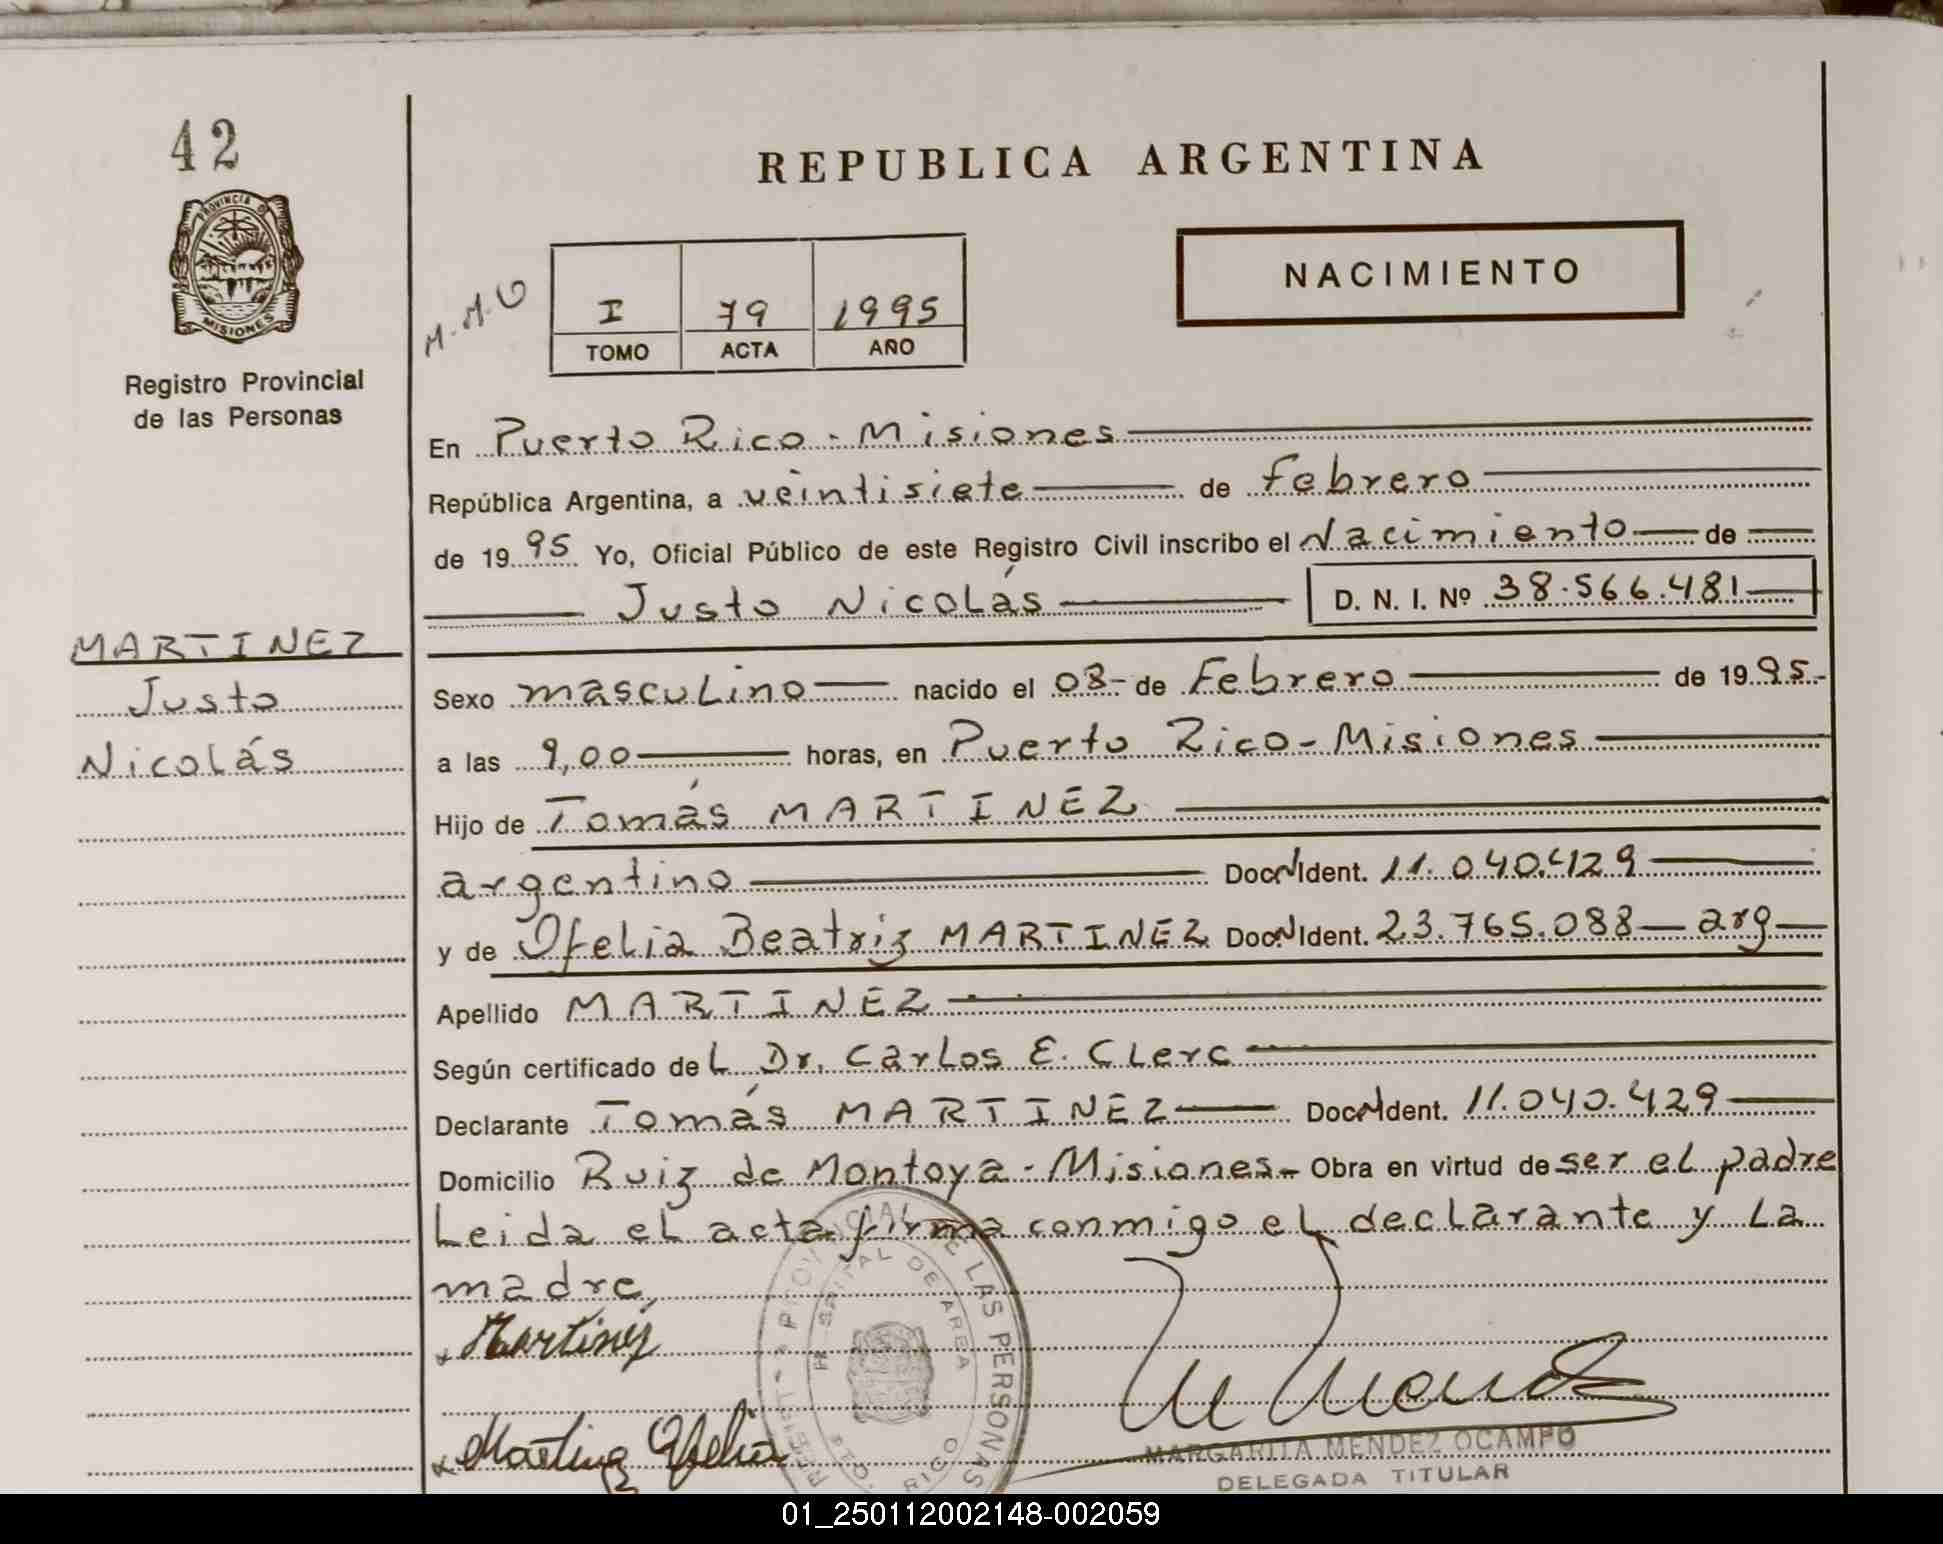 42
REPUBLICA ARGENTINA
PROVINCIA D
MISIONES
NACIMIENTO
I 79 1995
TOMO ACTA AÑO
Registro Provincial
de las Personas
En Puerto Rico - Misiones
República Argentina, a veintisiete de Febrero
de 19 95 Yo, Oficial Público de este Registro Civil inscribo el Nacimiento de
Justo Nicolás D. N. I. Nº 38.566.481
MARTINEZ
Justo
Nicolás
Sexo masculino nacido el 08 de Febrero de 19 95.
a las 9,00 horas, en Puerto Rico - Misiones
Hijo de Tomás MARTINEZ
argentino Doc N Ident. 11.040.429
y de Ofelia Beatriz MARTINEZ Doc N Ident. 23.765.088 - arg
Apellido MARTINEZ
Según certificado de L Dr. Carlos E. Clerc
Declarante Tomás MARTINEZ Doc N Ident. 11.040.429
Domicilio Ruiz de Montoya - Misiones - Obra en virtud de ser el padre
Leida el acta firma conmigo el declarante y la
madre,
Martinez
Martinez Ofelia
DE LAS PERSONAS
DE AREA
RICO
MARGARITA MENDEZ OCAMPO
DELEGADA TITULAR
01_250112002148-002059